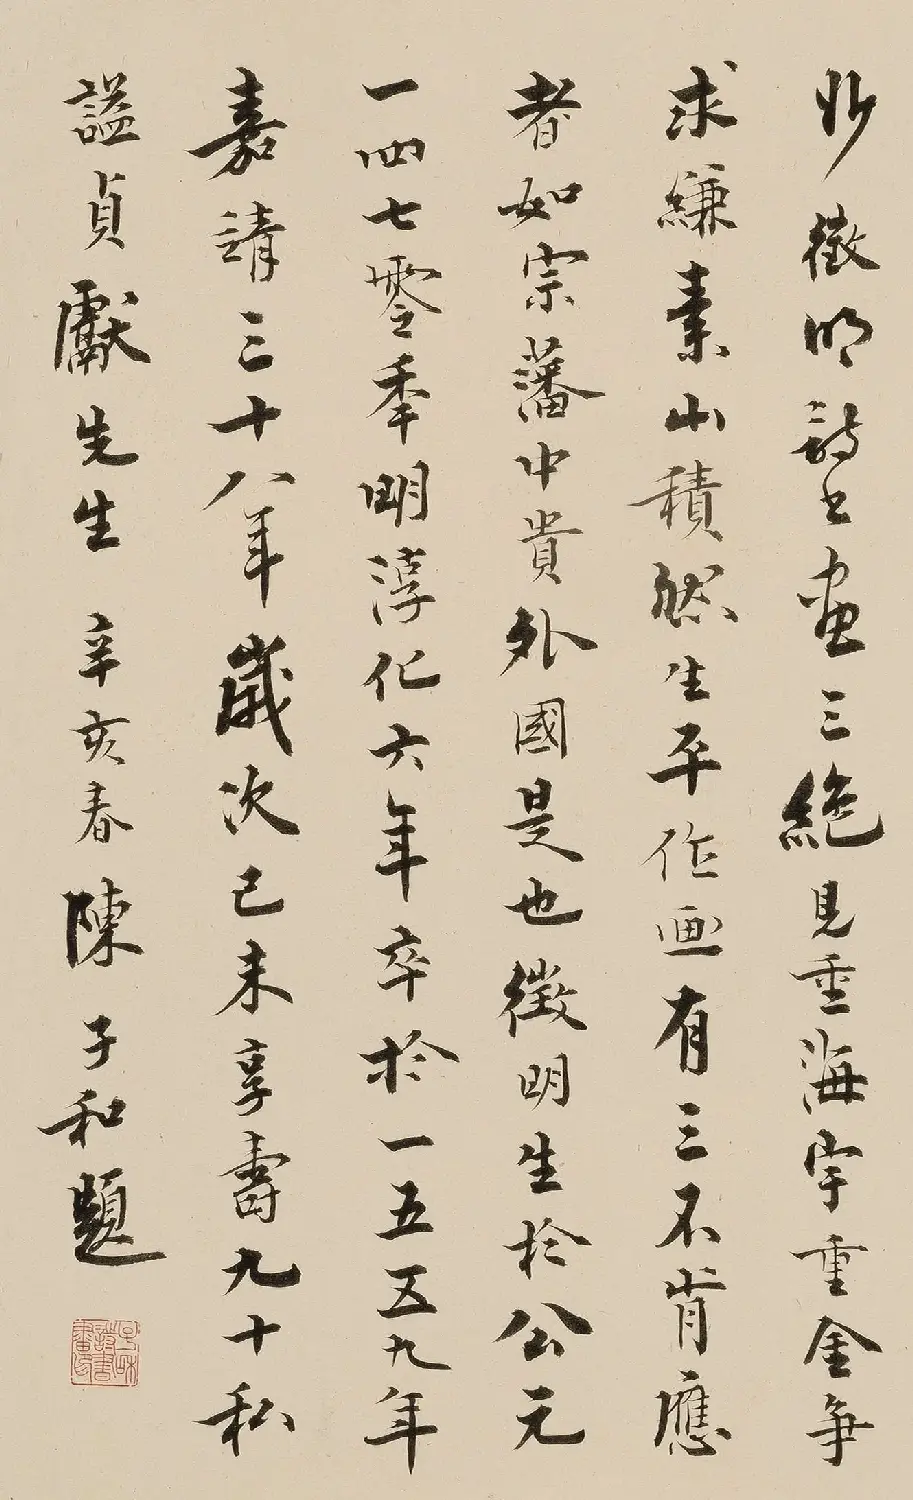 徵明詩書畫三絕見重海宇重金爭
求縑素山積然生平作画有三不肯應
者如宗藩中貴外國是也徵明生於公元
一四七零秊明淳化六年卒於一五五九年
嘉靖三十八年歲次己未享壽九十私
謚貞獻先生 辛亥春 陳子和題
子和詩書畫印